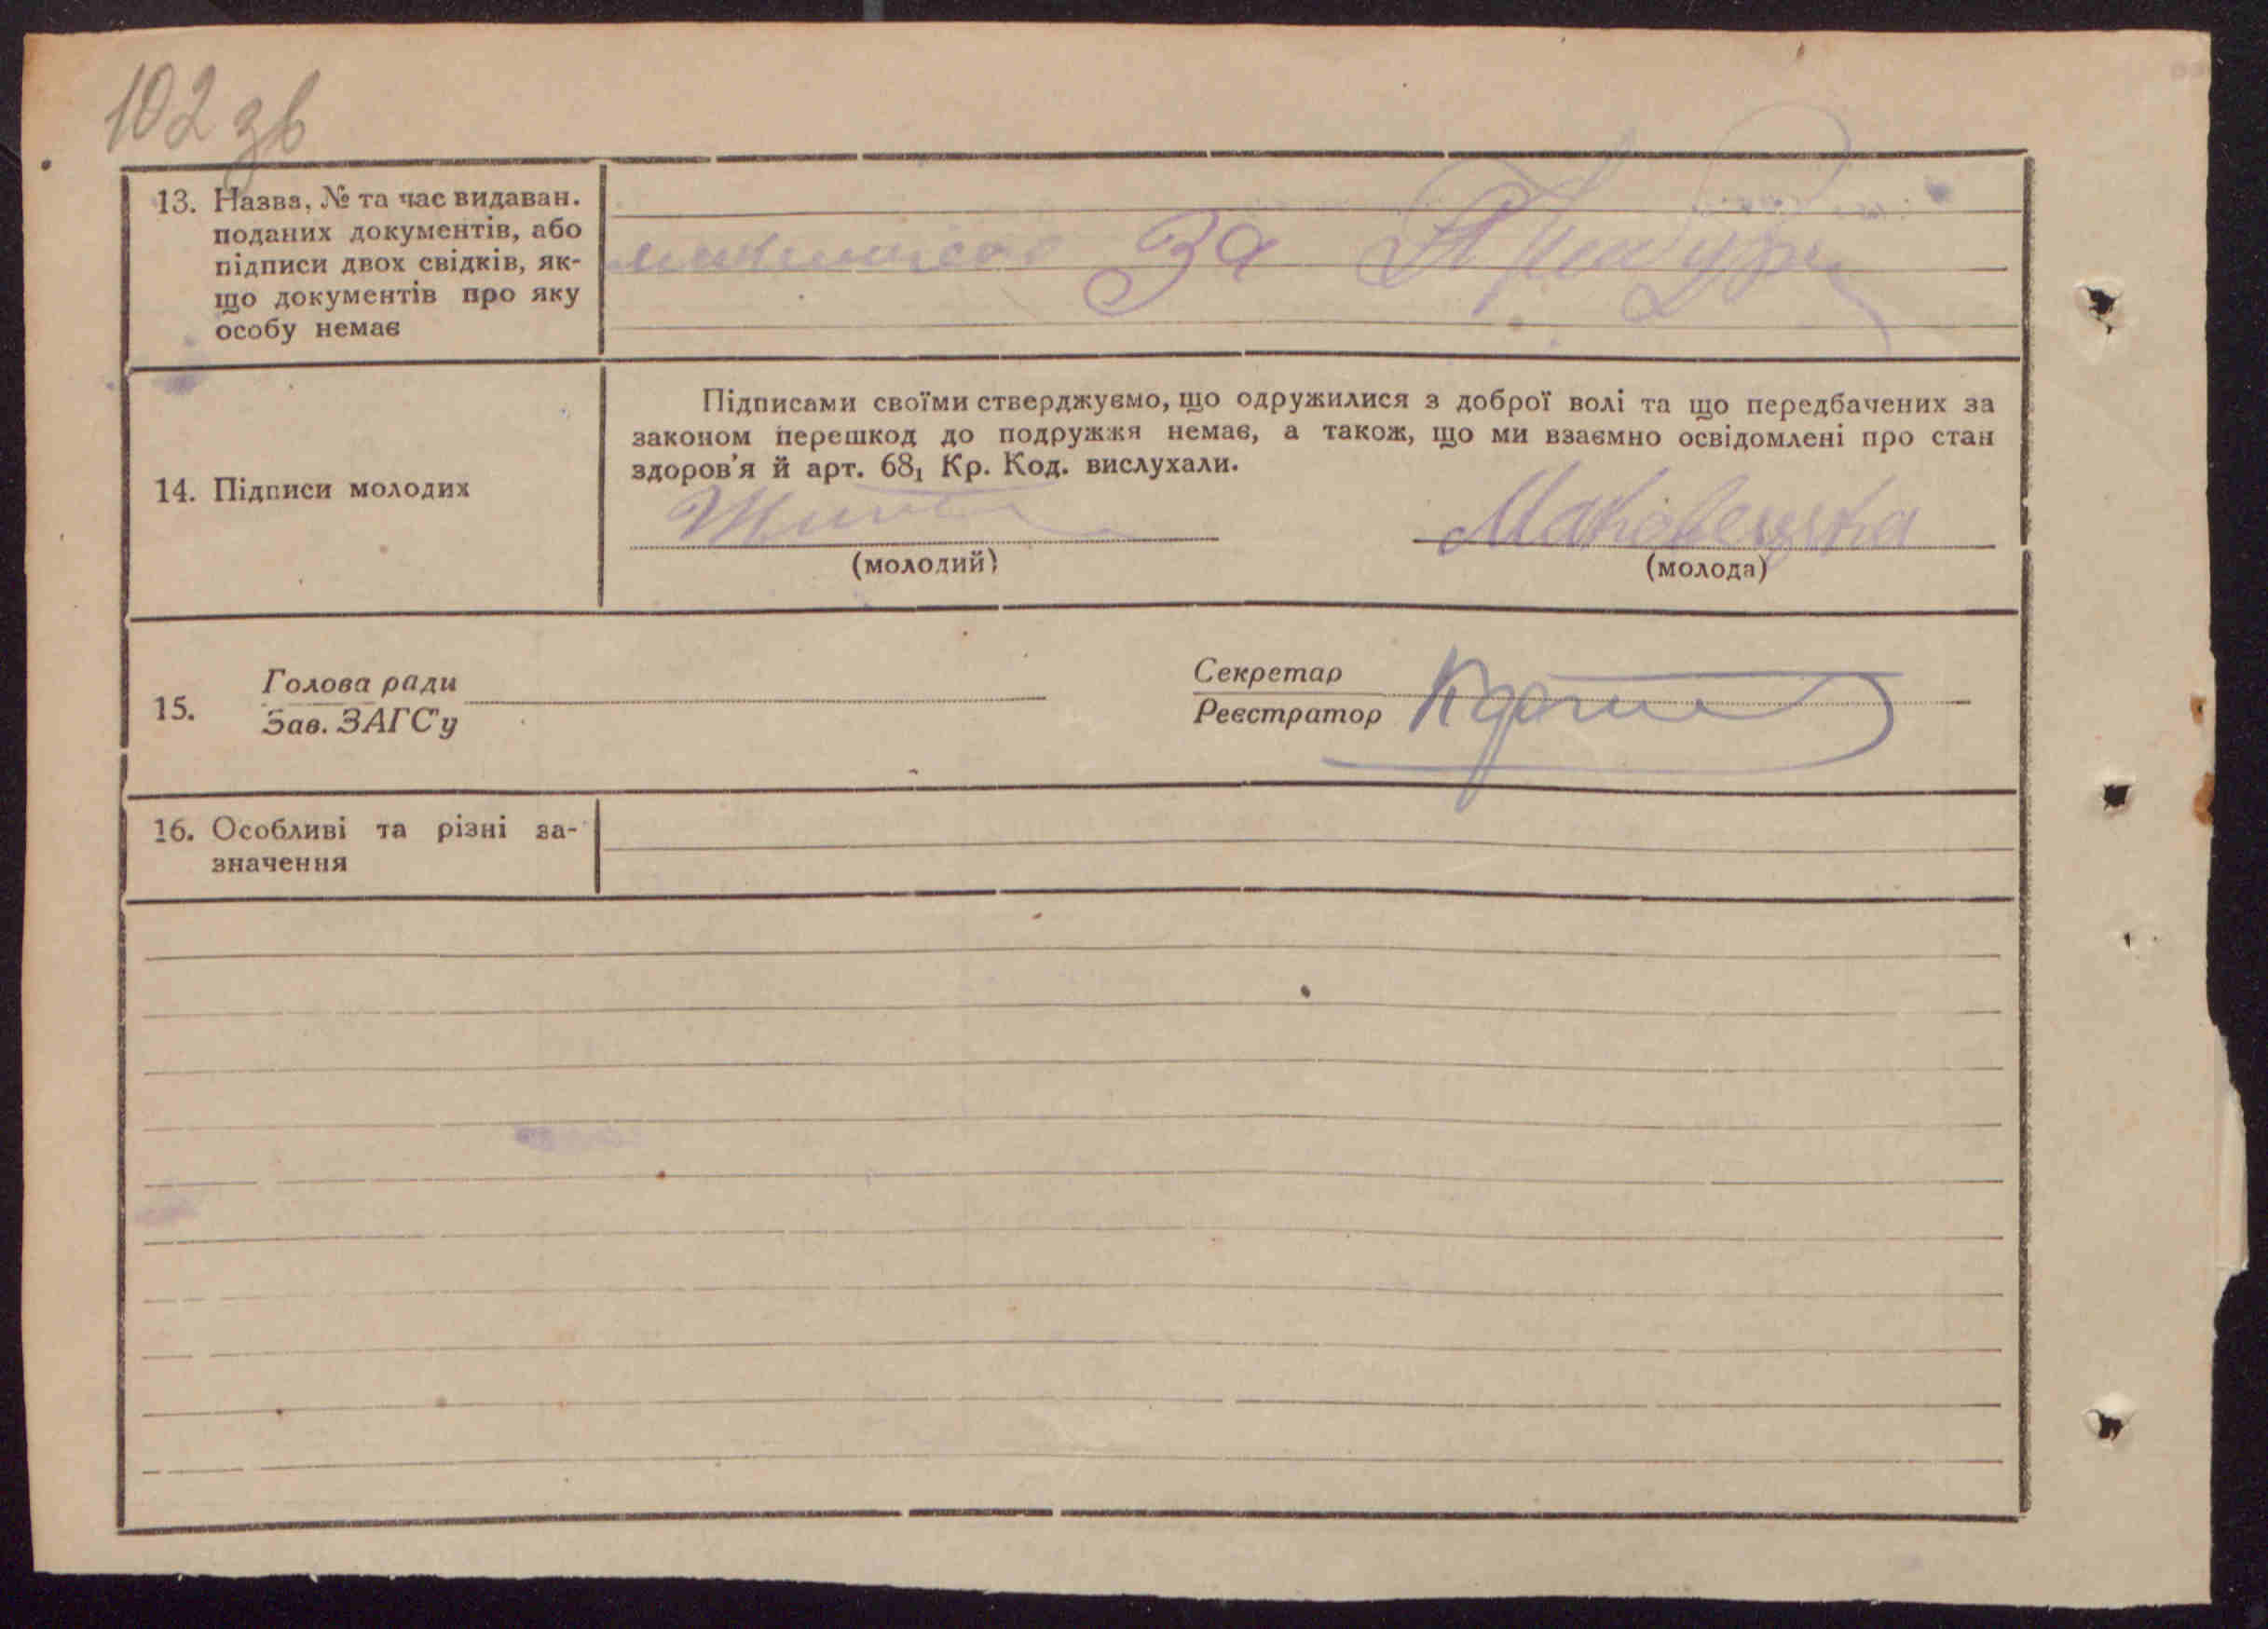 102 зв
13. Назва, № та час видаван.
поданих документів, або
підписи двох свідків, як-
що документів про яку
особу немає
За
14. Підписи молодих
Підписами своїми стверджуємо, що одружилися з доброї волі та що передбачених за
законом перешкод до подружжя немає, а також, що ми взаємно освідомлені про стан
здоров'я й арт. 68₁ Кр. Код. вислухали.
Маковецька
(молодий) (молода)
15. Голова ради
Зав. ЗАГС'у
Секретар
Реєстратор
16. Особливі та різні за-
значення